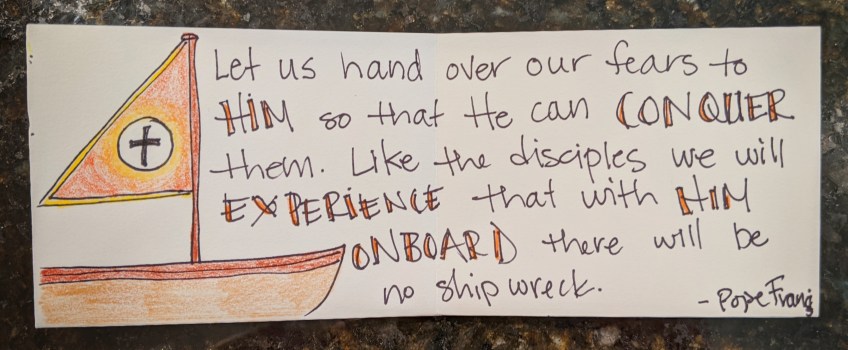 Let us hand over our fears to
HIM so that He can CONQUER
them. Like the disciples we will
EXPERIENCE that with HIM
ONBOARD there will be
no shipwreck.
- Pope Francis